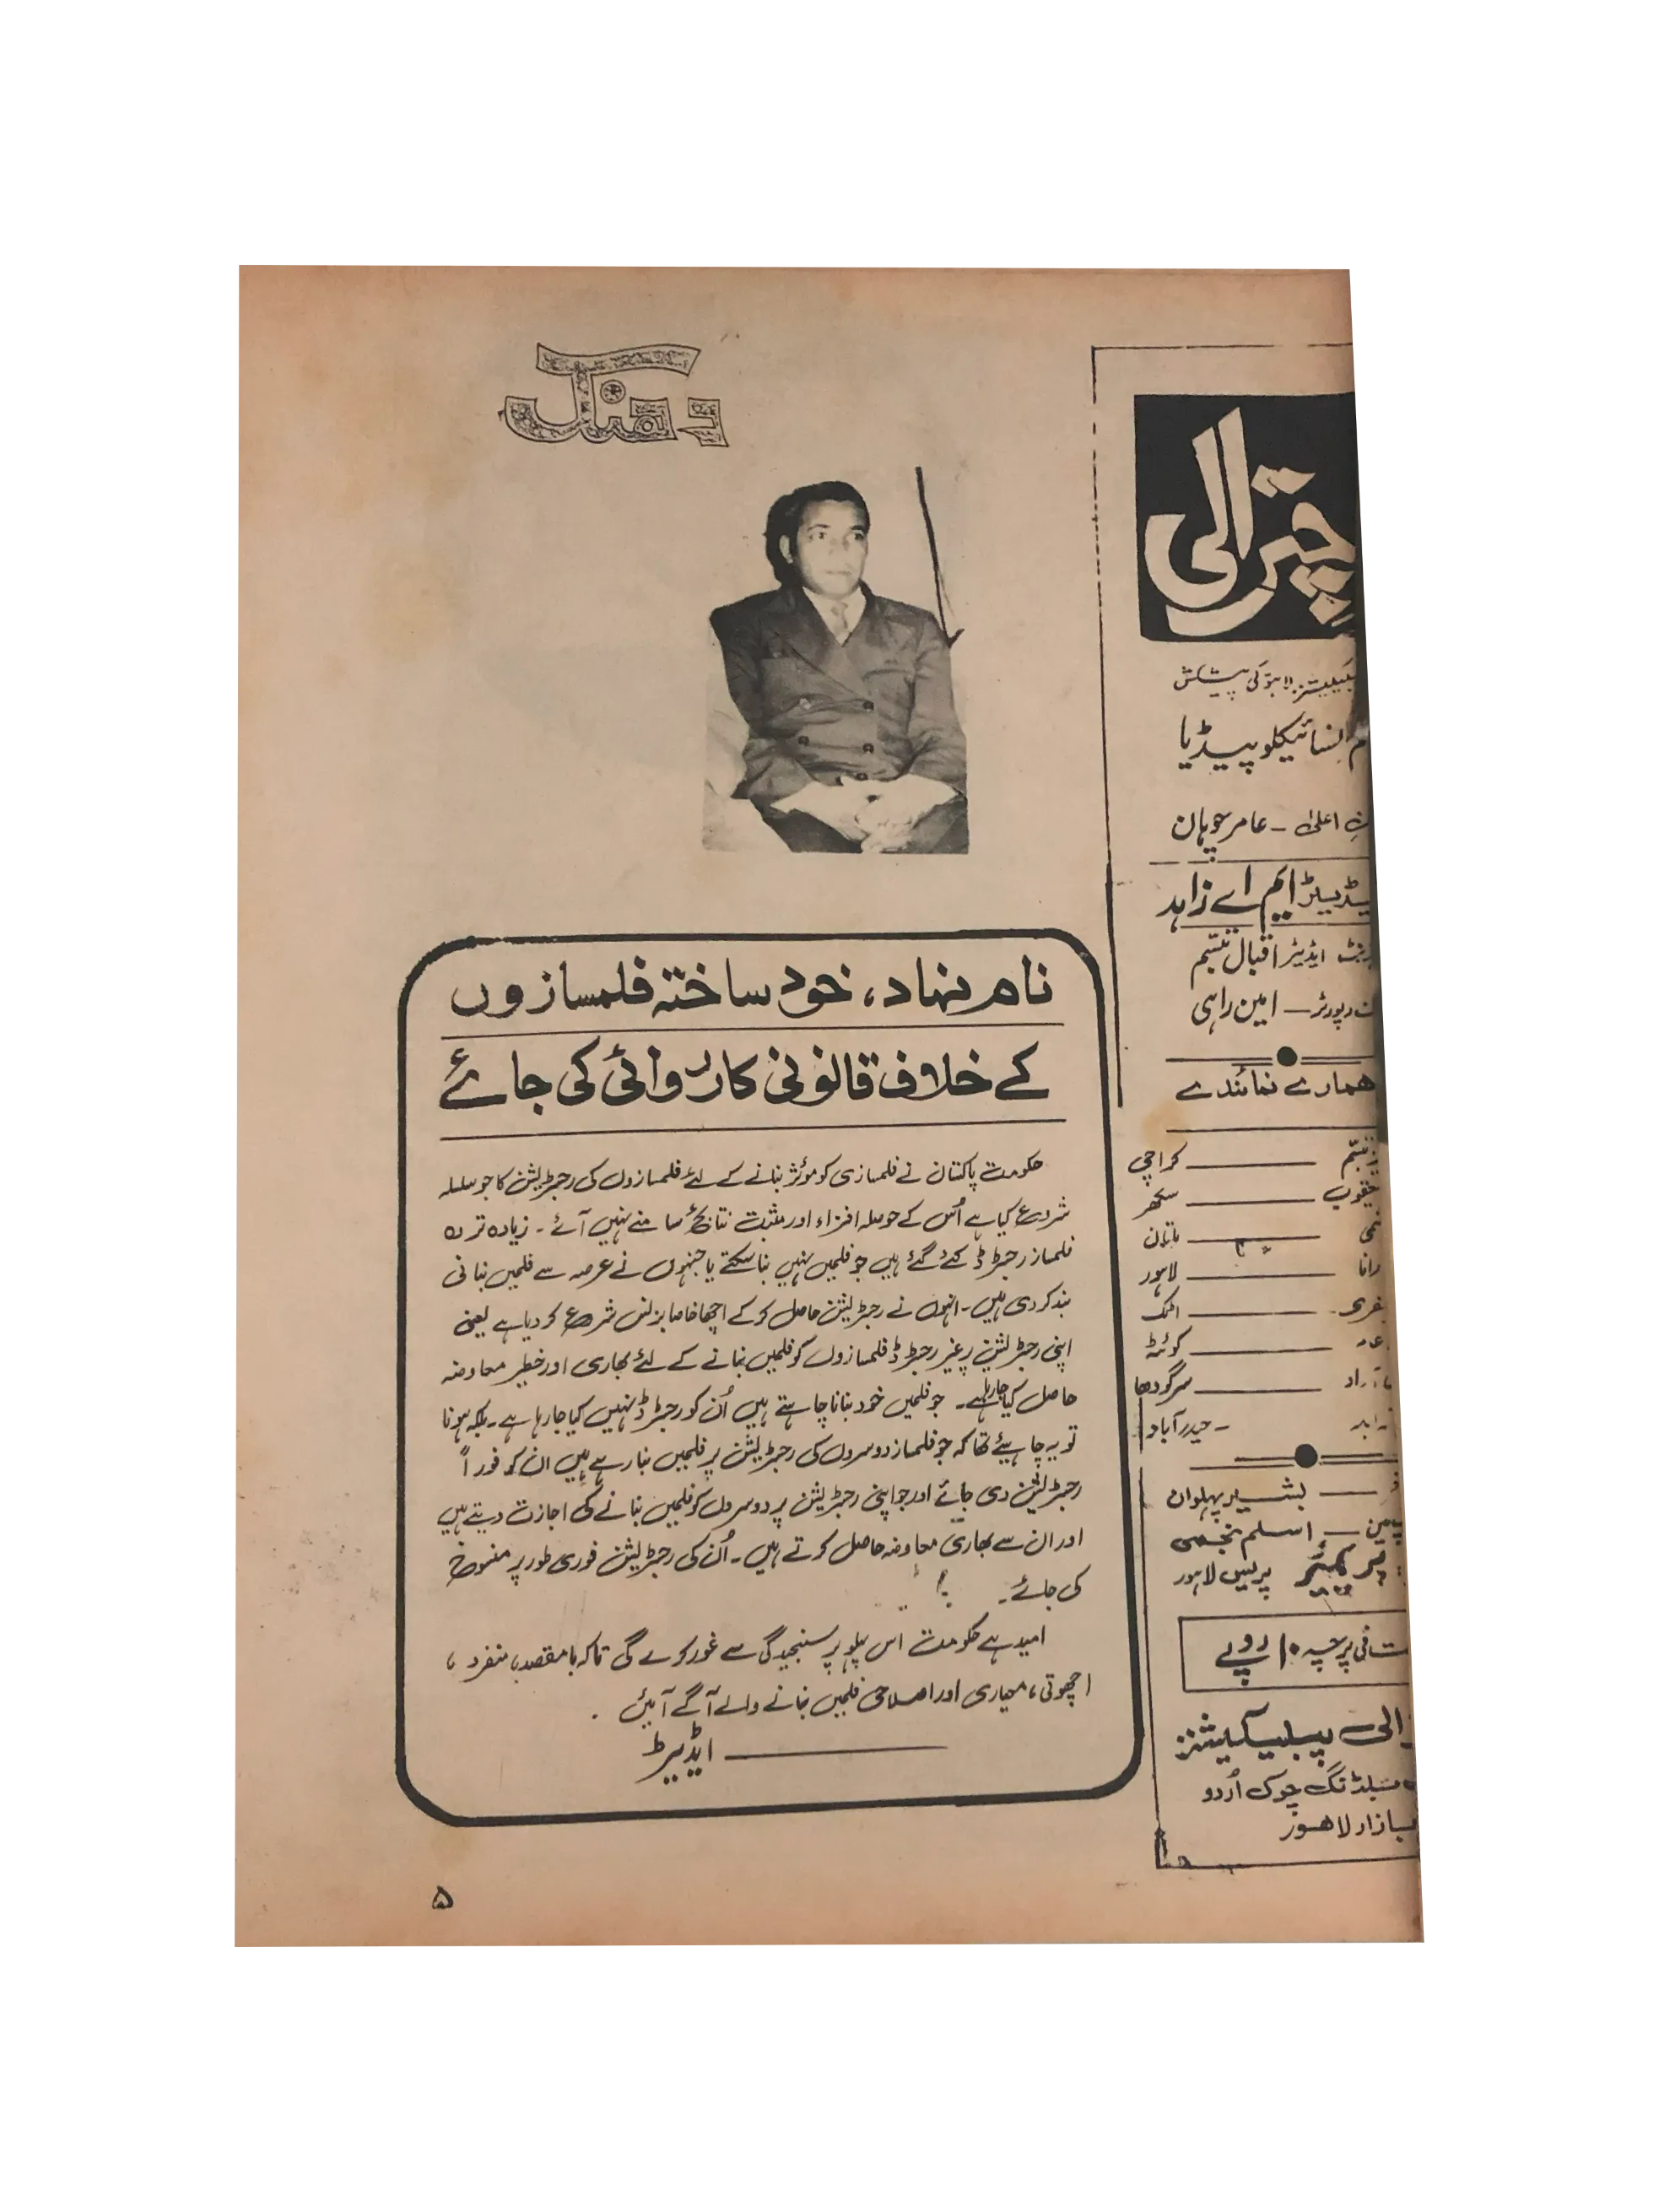 دھنک
نام نہاد، خود ساختہ فلمسازوں
کے خلاف قانونی کارروائی کی جائے
حکومت پاکستان نے فلمسازی کو موثر بنانے کے لئے فلمسازوں کی رجسٹریشن کا جو سلسلہ
شروع کیا ہے اُس کے حوصلہ افزاء اور مثبت نتائج سامنے نہیں آئے۔ زیادہ تر وہ
فلمساز رجسٹرڈ کئے گئے ہیں جو فلمیں نہیں بنا سکتے یا جنہوں نے عرصہ سے فلمیں بنانی
بند کر دی ہیں۔ انہوں نے رجسٹریشن حاصل کر کے اچھا خاصا بزنس شروع کر دیا ہے یعنی
اپنی رجسٹریشن پر غیر رجسٹرڈ فلمسازوں کو فلمیں بنانے کے لئے بھاری اور خطیر معاوضہ
حاصل کیا جا رہا ہے۔ جو فلمیں خود بنانا چاہتے ہیں اُن کو رجسٹرڈ نہیں کیا جا رہا ہے۔ بلکہ ہونا
تو یہ چاہیئے تھا کہ جو فلمساز دوسروں کی رجسٹریشن پر فلمیں بنا رہے ہیں ان کو فوراً
رجسٹریشن دی جائے اور جو اپنی رجسٹریشن پر دوسروں کو فلمیں بنانے کی اجازت دیتے ہیں
اور ان سے بھاری معاوضہ حاصل کرتے ہیں۔ اُن کی رجسٹریشن فوری طور پر منسوخ
کی جائے۔
امید ہے حکومت اس پہلو پر سنجیدگی سے غور کرے گی تاکہ بامقصد، منفرد،
اچھوتی، معیاری اور اصلاحی فلمیں بنانے والے آگے آئیں.
ایڈیٹر
۵
چترالی
لاہور کی پیشکش
انسائیکلوپیڈیا
اعلیٰ - عامر سوہان
ایم اے زاہد
ایڈیٹر اقبال تبسم
رپورٹر — امین راہی
ہمارے نمائندے
کراچی
سکھر
ملتان
رانا — لاہور
اٹک
کوئٹہ
سرگودھا
حیدرآباد
بشیر پہلوان
اسلم نجمی
پریمیئر پریس لاہور
فی پرچہ ۱۰ روپے
پبلیکیشنز
بلڈنگ چوک اُردو
بازار لاہور